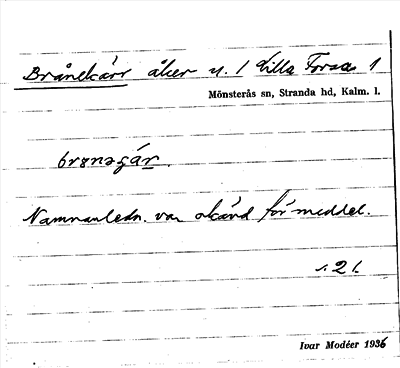 Brånekärr åker u. / Lilla Forsa 1
Mönsterås sn, Stranda hd, Kalm. l.
brønəgár.
Namnanledn. var okänd för meddel.
s. 21.
Ivar Modéer 1936